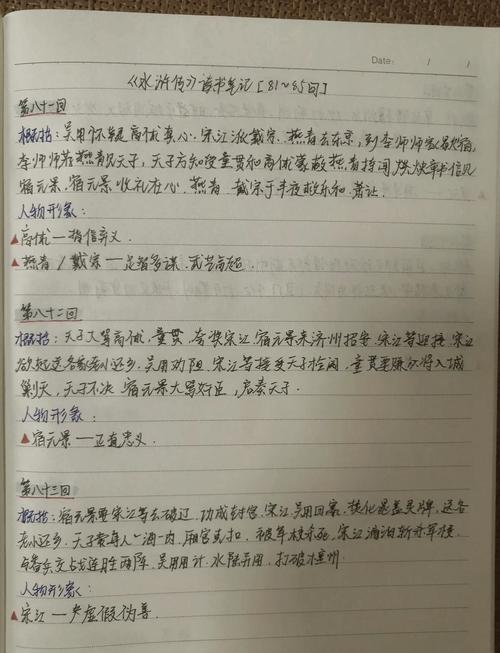 Date: / /
《水浒传》读书笔记[81~85回]
第八十一回
概括：吴用怀疑高俅真心。宋江派戴宗、燕青去东京，到李师师家留宿，
李师师为燕青见天子，天子方知受童贯和高俅蒙蔽 燕青持闻焕章书信见
宿元景，宿元景收礼在心。燕青、戴宗于半夜救乐和、萧让。
人物形象：
▲高俅—背信弃义.
▲燕青/戴宗—足智多谋.武艺高超.
第八十二回
概括：天子大骂高俅、童贯，夸奖宋江.宿元景来济州招安.宋江等迎接.宋江
欲 送各家老小还乡.吴用劝阻.宋江等接受天子检阅，童贯要赚众将入城
剿灭，天子不决.宿元景大骂奸臣，启奏天子.
人物形象：
▲宿元景—正直忠义.
第八十三回
概括：宿元景要宋江等去破辽.功成封官.宋江.吴用回寨，焚化晁盖灵牌，送各
老小还乡.天子赏每人酒一 肉.厢官克扣.被军校杀死，宋江滴泪斩亦军校.
与番兵交战连胜两阵.吴用用计.水陆并用.打破檀州.
人物形象：
▲宋江—严虚假伪善.